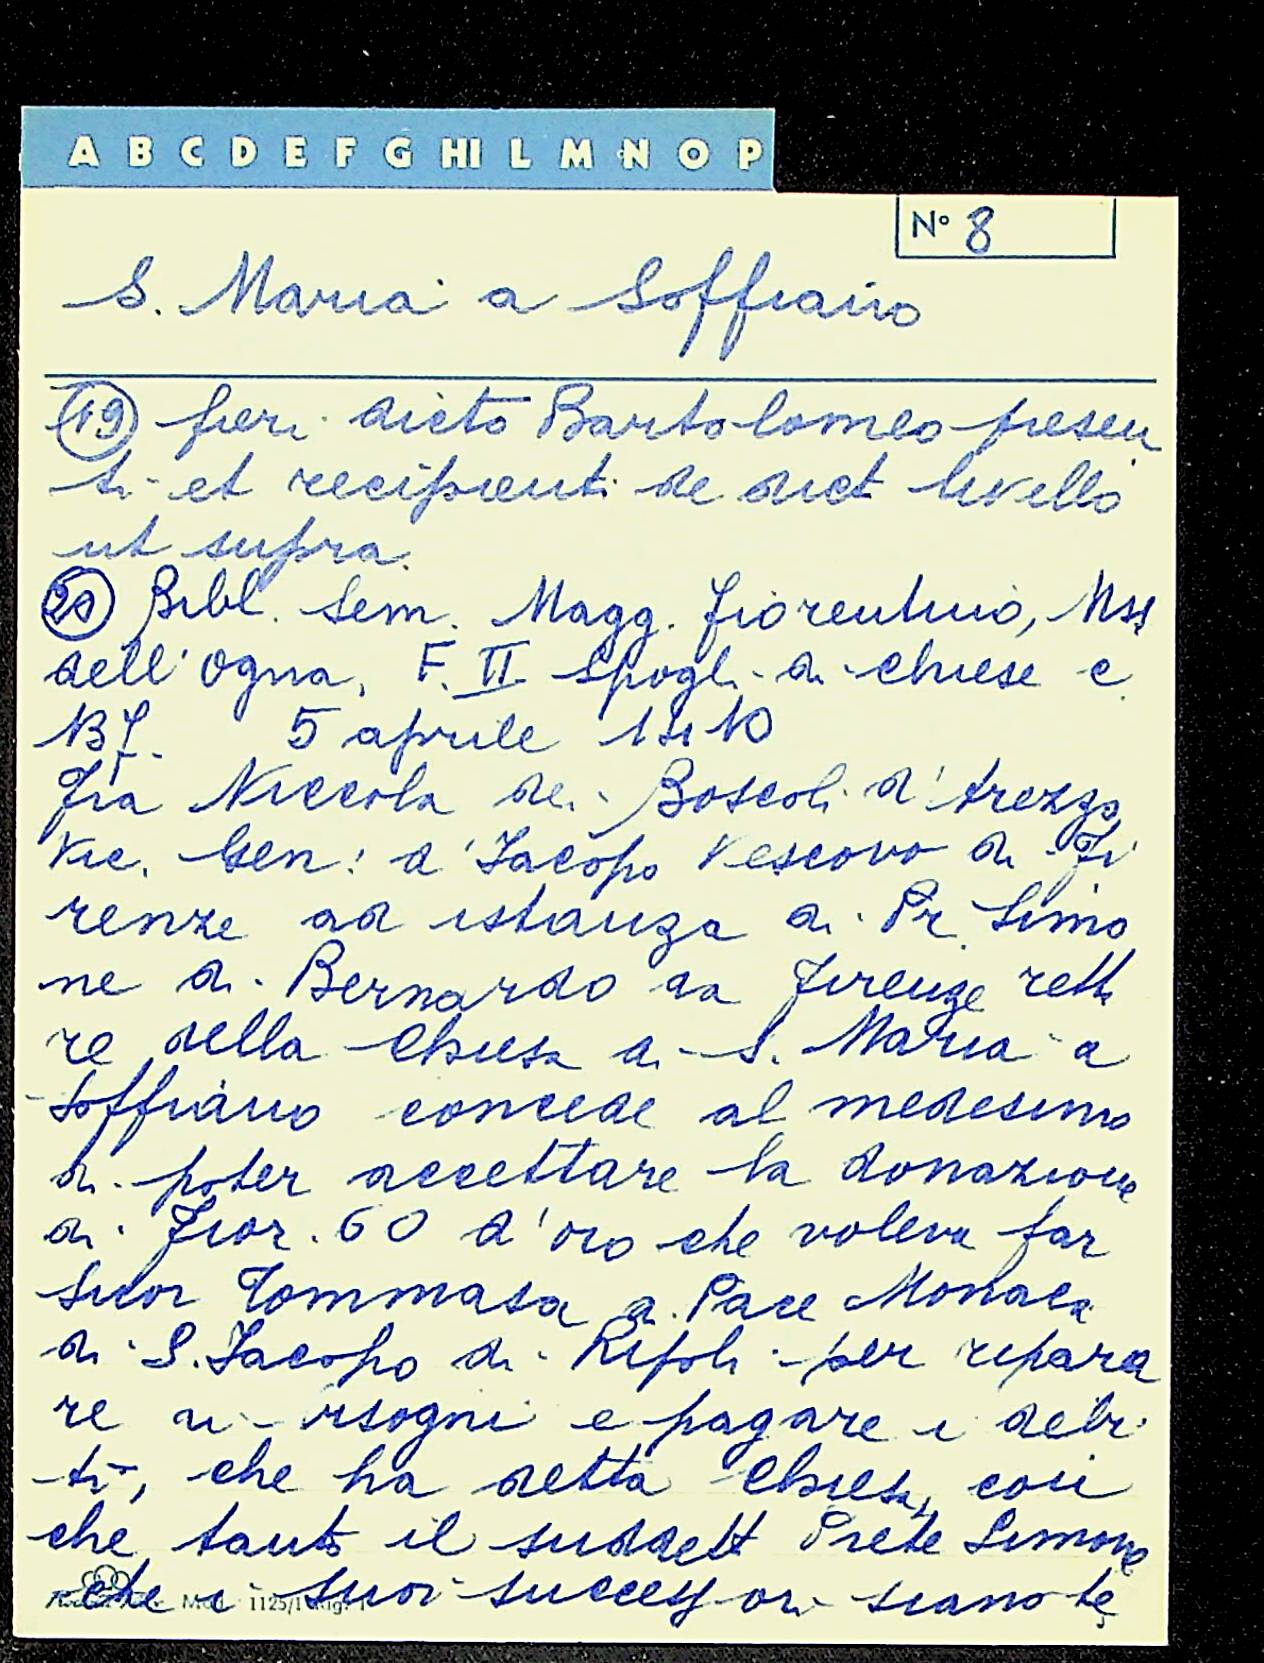 A B C D E F G HI L M N O P
N° 8
S. Maria a Soffiano
(19) fieri dicto Bartolomeo presen
ti et recipienti de dict livello
ut supra.
(20) Bibl. Sem. Magg. Fiorentino, Mss
dell'Ogna, F. II Spogli di chiese e
5 aprile 1410
Fra Niccola dei Boscoli d'Arezzo
Vic. Gen: d'Jacopo Vescovo di Fi
renze ad istanza di Pr. Simo
ne di Bernardo da Firenze rett
re della Chiesa di S. Maria a
Soffiano concede al medesimo
di poter accettare la donazione
di Fior. 60 d'oro che voleva far
Suor Tommasa di Pace Monaca
di S. Jacopo di Ripoli per repara
re e pagare i debi
ti, che ha detta Chiesa, con
che tanto il suddett Prete Simone
che i suoi successori siano te
Mod. 1125/1